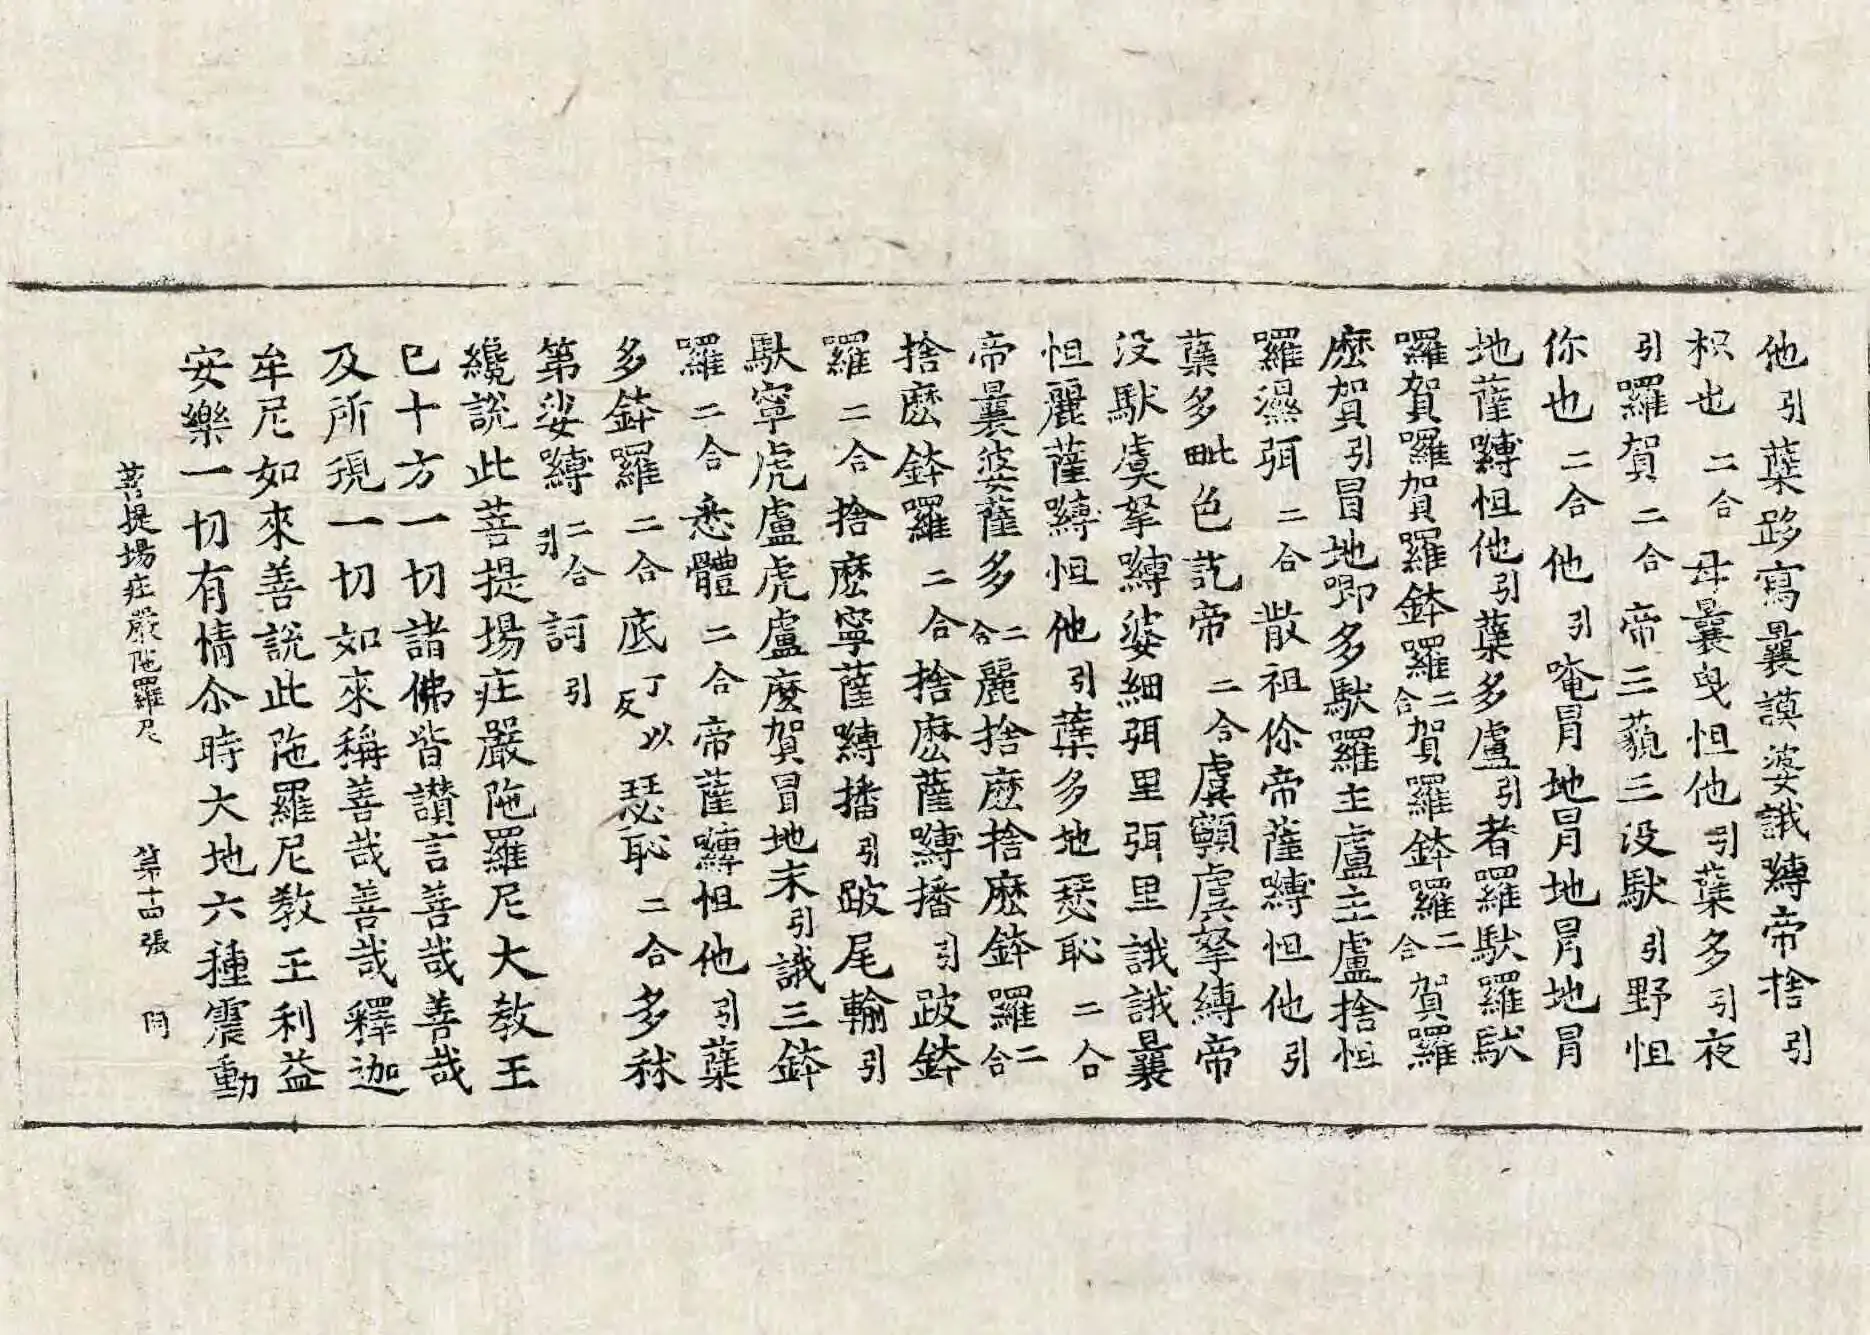 他引蘖跢寫曩謨婆誐嚩帝捨引
枳也二合母曩曳怛他引蘖多引夜
引囉賀二合帝三藐三没馱引野怛
你也二合他引唵冐地冐地冐地冐
地薩嚩怛他引蘖多盧引者囉馱囉馱
囉賀囉賀囉鉢囉二合賀囉鉢囉二合賀囉
麽賀引冒地唧多馱囉主盧主盧捨怛
囉濕弭二合散祖你帝薩嚩怛他引
蘖多毗色訖帝二合虞顊虞拏嚩帝
没馱虞拏嚩婆細弭里弭里誐誐曩
怛麗薩嚩怛他引蘖多地瑟恥二合
帝曩婆薩多二合麗捨麽捨麽鉢囉二合
捨麽鉢囉二合捨麽薩嚩播引跛鉢
囉二合捨麽寧薩嚩播引跛尾輸引
馱寧虎盧虎盧麽賀冒地末引誐三鉢
囉二合悉體二合帝薩嚩怛他引蘖
多鉢囉二合底丁以反瑟恥二合多秫
第娑嚩二合引訶引
纔說此菩提場莊嚴陁羅尼大教王
已十方一切諸佛皆讃言善哉善哉
及所現一切如來稱善哉善哉釋迦
牟尼如來善說此陁羅尼教王利益
安樂一切有情尒時大地六種震動
菩提場莊嚴陁羅尼　第十四張　同